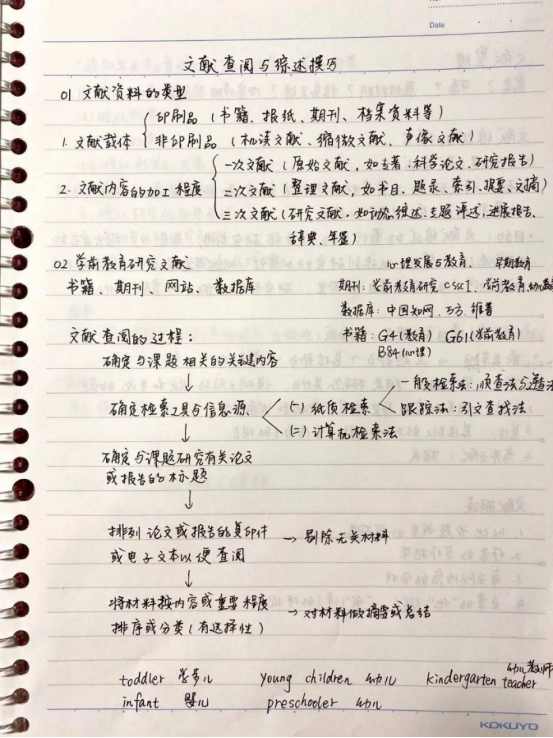 Date
文献查阅与综述撰写
01 文献资料的类型
1. 文献载体 印刷品（书籍、报纸、期刊、档案资料等）
非印刷品（机读文献、缩微文献、声像文献）
2. 文献内容的加工程度 一次文献（原始文献，如专著、科学论文、研究报告）
二次文献（整理文献，如书目、题录、索引、提要、文摘）
三次文献（研究文献，如动态综述、专题评述，进展报告、
辞典、年鉴）
02 学前教育研究文献
心理发展与教育、 早期教育
书籍、期刊、网站、数据库
期刊：学前教育研究 CSSCI、
数据库：中国知网、万方、维普
文献查阅的过程：
书籍：G4（教育） G61（学前教育）
B84（心理）
确定与课题相关的关键内容
↓
确定检索工具与信息源 （一）纸质检索 一般检索法：顺查法与逆查法
跟踪法：引文查找法
（二）计算机检索法
↓
确定与课题研究有关论文
或报告的标题
↓
排列论文或报告的复印件 → 剔除无关材料
或电子文本以便查阅
↓
将材料按内容或重要程度 → 对材料做摘要或总结
排序或分类（有选择性）
toddler 学步儿 young children 幼儿 kindergarten teacher 幼儿教师
infant 婴儿 preschooler 幼儿
KOKUYO